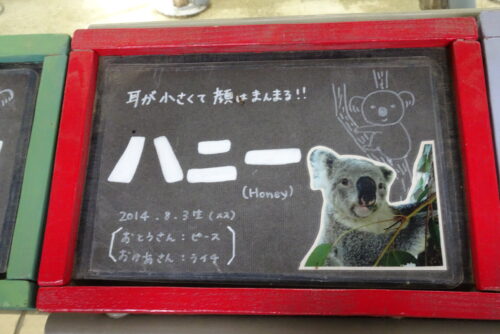 耳が小さくて顔はまんまる!!
ハニー
(Honey)
2014.8.3生(メス)
おとうさん:ピース
おかあさん:ライチ